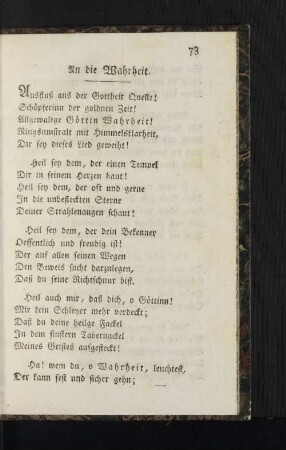 73
An die Wahrheit.
Ausfluß aus der Gottheit Quelle!
Schöpferinn der goldnen Zeit!
Allgewaltge Göttin Wahrheit!
Ringsumstralt mit Himmelsklarheit,
Dir sey dieses Lied geweiht!
Heil sey dem, der einen Tempel
Dir in seinem Herzen baut!
Heil sey dem, der oft und gerne
In die unbefleckten Sterne
Deiner Strahlenaugen schaut!
Heil sey dem, der dein Bekenner
Oeffentlich und freudig ist!
Der auf allen seinen Wegen
Den Beweis sucht darzulegen,
Daß du seine Richtschnur bist.
Heil auch mir, daß dich, o Göttinn!
Mir kein Schleyer mehr verdeckt;
Daß du deine heilge Fackel
In dem finstern Tabernackel
Meines Geistes aufgesteckt!
Ha! wem du, o Wahrheit, leuchtest,
Der kann fest und sicher gehn;